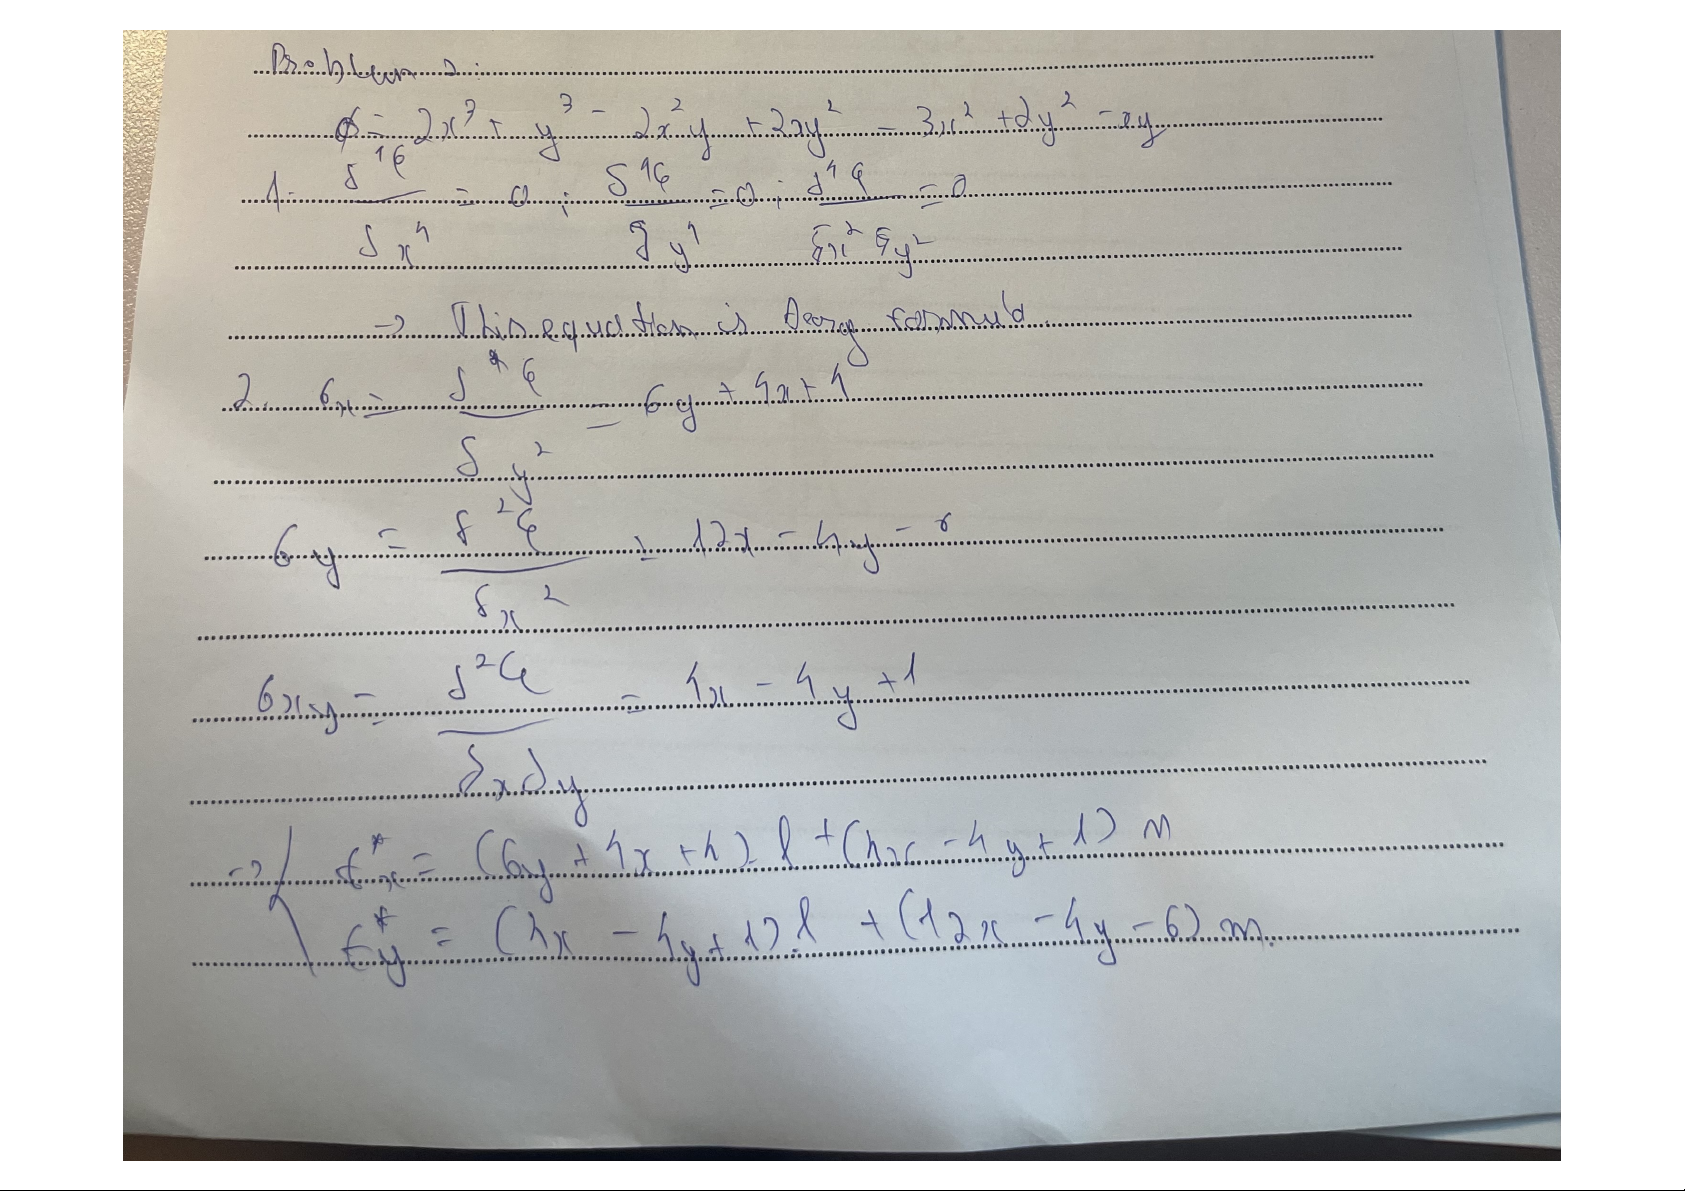 Problem 2:
φ = 2x³ + y³ - 2x²y + 2xy² - 3x² + 2y² - xy
1. δ⁴φ/δx⁴ = 0 ; δ⁴φ/δy⁴ = 0 ; δ⁴φ/δx²δy² = 0
→ This equation is formula
2. σx = δ²φ/δy² = 6y + 4x + 4
σy = δ²φ/δx² = 12x - 4y - 6
σxy = δ²φ/∂x∂y = 4x - 4y + 1
→ { t*x = (6y + 4x + 4).l + (4x - 4y + 1) m
t*y = (4x - 4y + 1).l + (12x - 4y - 6) m.